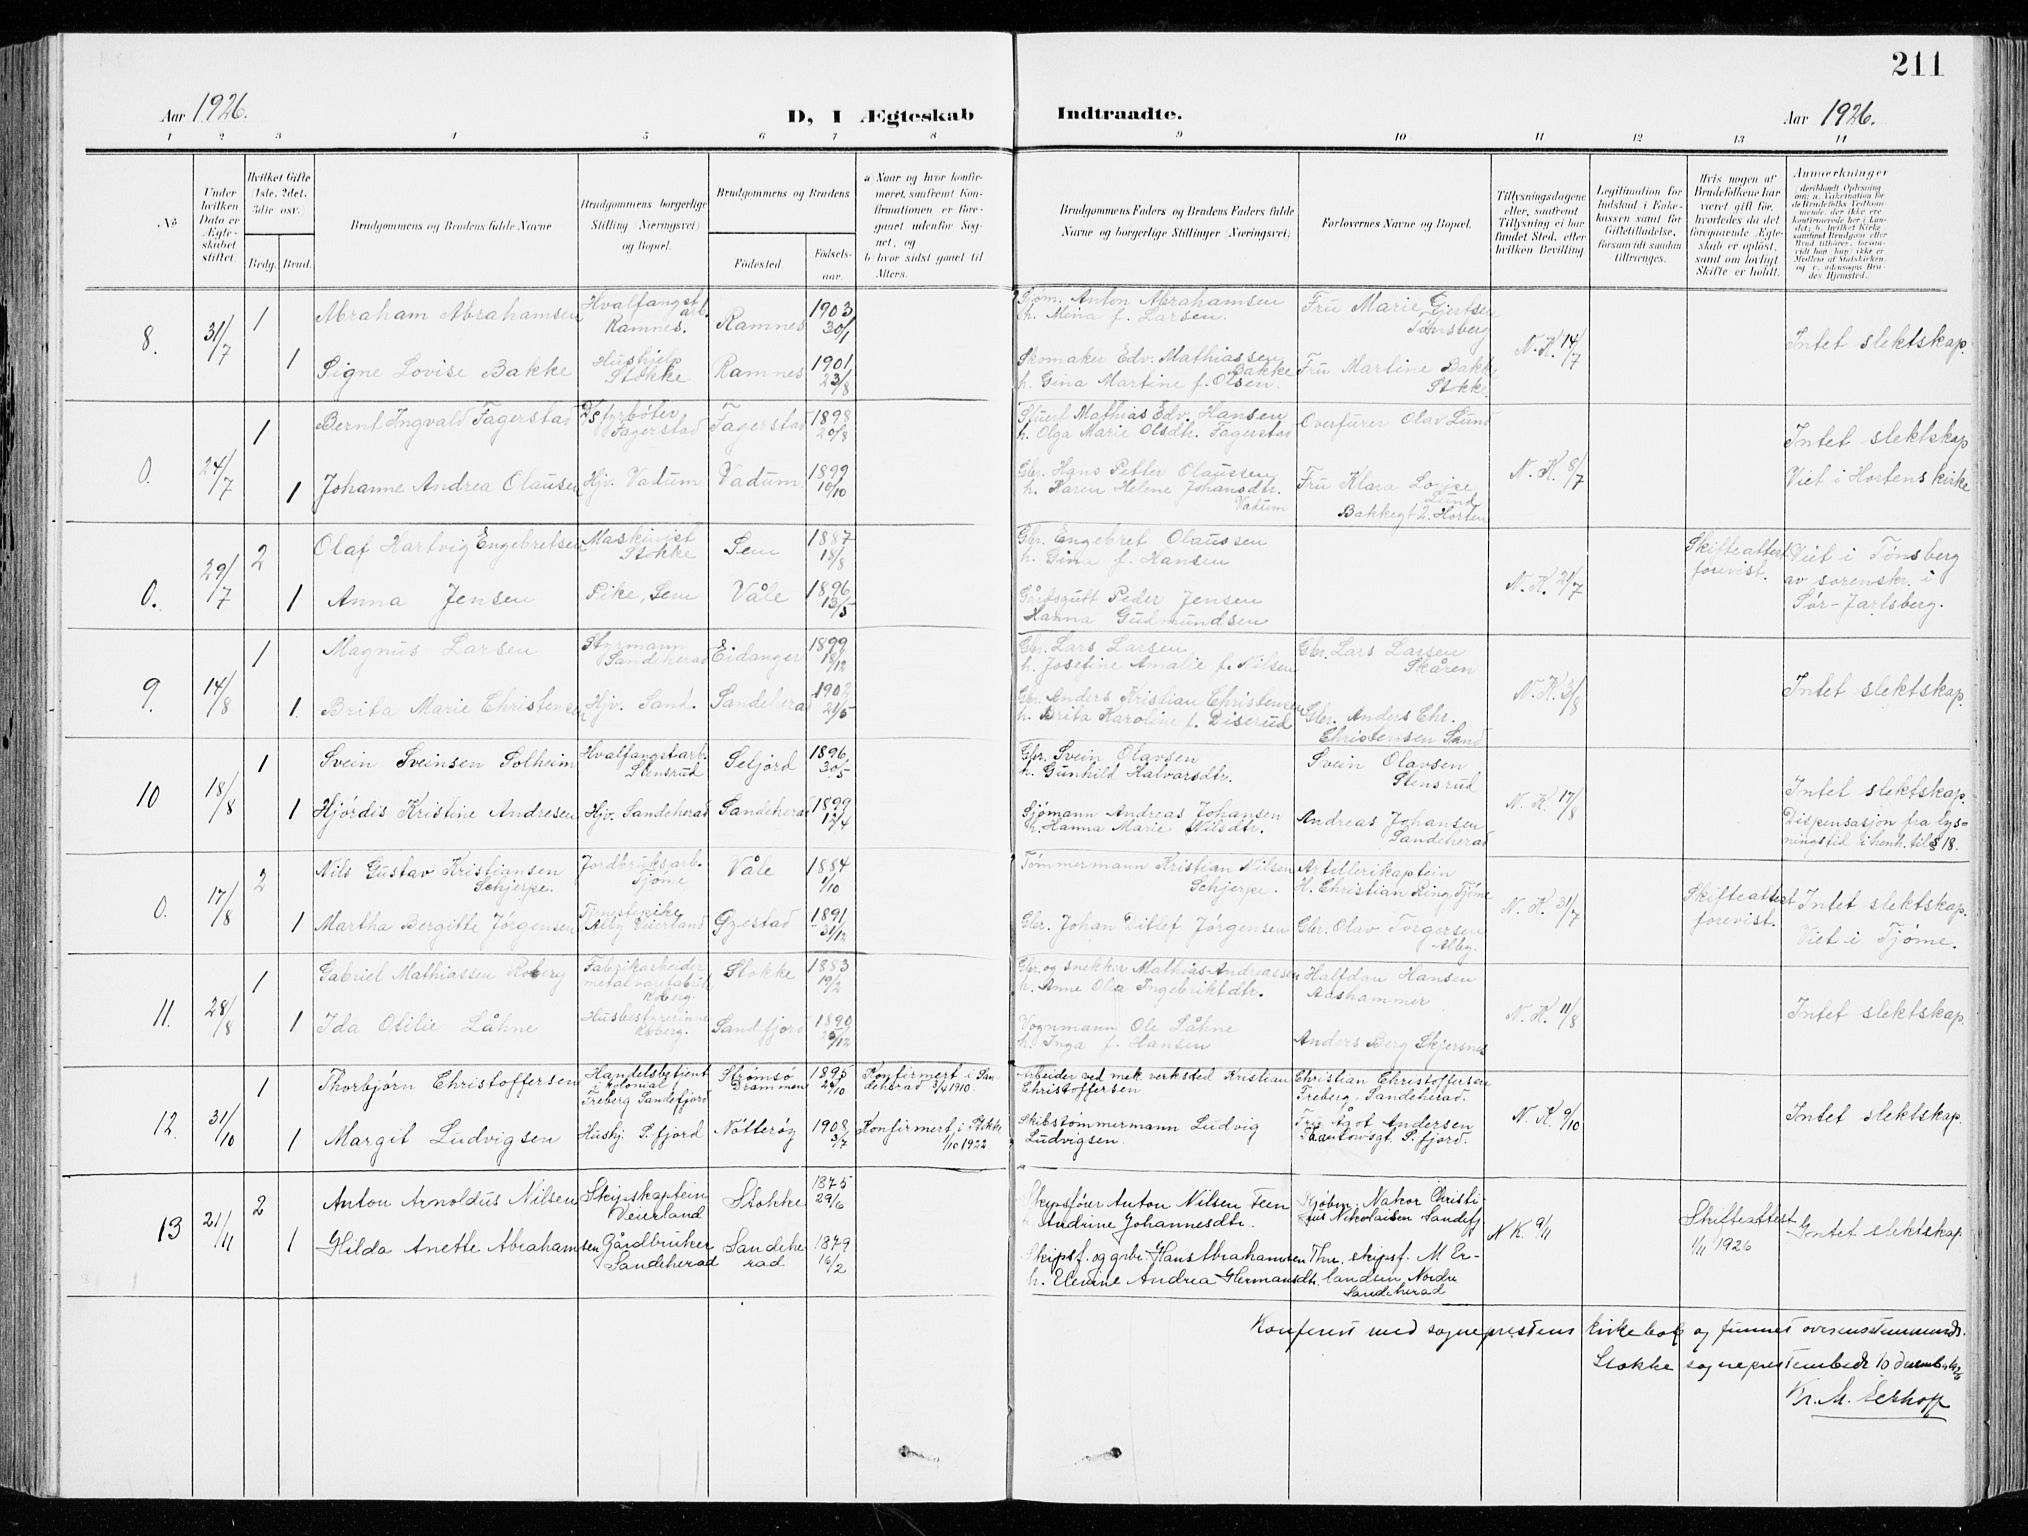 211
Aar 1926.
D, I Ægteskab Indtraadte.
Aar 1926.
1 2 3 4 5 6 7 8 9 10 11 12 13 14
No
Under hvilken Dato er Ægteskabet stiftet.
Hvilket Gifte (1ste, 2det, 3die osv.
Brdg. Brud.
Brudgommens og Brudens fulde Navne
Brudgommens borgerlige Stilling (Næringsvei) og Bopæl.
Brudgommens og Brudens
Fødested.
Fødselsaar.
a) Naar og hvor konfirmeret, saafremt Konfirmationen er foregaaet udenfor Sognet, og
b) hvor sidst gaaet til Alters.
Brudgommens Faders og Brudens Faders fulde Navne og borgerlige Stillinger (Næringsvei)
Forlovernes Navne og Bopæl.
Tillysningsdagene eller, saafremt Tillysning ei har fundet Sted, efter hvilken Bevilling
Legitimation for Indskud i Enkekassen samt for Giftetilladelse, forsaavidt saadan tiltrænges.
Hvis nogen af Brudefolkene har været gift før, hvorledes da det foregaaende Ægteskab er opløst, samt om lovligt Skifte er holdt.
Anmerkninger
8. 31/7
1 Abraham Abrahamsen
Hvalfangstarb. Ramnes.
Ramnes
1903 30/1
Sjøm. Anton Abrahamsen
h. Mina f. Larsen.
Fru Marie Gjertsen
Tønsberg
N. K. 14/7
Intet slektskap.
1 Signe Lovise Bakke
Hushjelp Stokke
Ramnes
1901 23/8
Skomaker Edv. Mathiassen Bakke
h. Gina Martine f. Olsen.
Fru Martine Bakk
Stokke.
0. 24/7
1 Bernt Ingvald Fagerstad
Fyrbøter Fagerstad
Fagerstad
1898 20/8
Stuert Mathias Edv. Hansen
h. Olga Marie Olsdtr. Fagerstad
Overfurer Olav Lund
N. K. 8/7
Intet slektskap
Viet i Hortens kirke
1 Johanne Andrea Olausen
Hjv. Vadum
Vadum.
1899 10/10
Gbr. Hans Petter Olaussen
h. Karen Helene Johansdtr.
Vadum
Fru Klara Lovise
Lund
Bakkegt 2. Horten
0. 29/7
2 Olaf Hartvig Engebretsen
Maskinist Stokke
Sem
1887 18/8
Gbr. Engebret Olaussen
h. Gina f. Hansen
N. K. 21/7
Skifteattest forevist.
Viet i Tønsberg
av sorenskr. i
Sør-Jarlsberg.
1 Anna Jensen
Pike, Sem
Våle
1896 13/5
Gårdsgutt Peder Jensen
Hanna Gudmundsen
9. 14/8
1 Magnus Larsen
Styrmann Sandeherad
Eidanger
1899 18/12
Gbr. Lars Larsen
h. Josefine Amalie f. Nilsen
Gbr. Lars Larsen
Skåren
N. K. 3/8
Intet slektskap.
1. Brita Marie Christensen
Hjv. Sand.
Sandeherad
1902 21/5
Gbr. Anders Kristian Christensen
h. Brita Karoline f. Diserud
Gbr. Anders Chr.
Christensen Sand
10 18/8
1 Svein Sveinsen Solheim
Hvalfangstarb. Stensrud
Seljord
1896 30/5
Gbr. Svein Olavsen
h. Gunhild Halvorsdtr.
Svein Olavsen
Stensrud
N. K. 17/8
Intet slektskap.
Dispensasjon fra lys-
ningstid i henh. til § 18.
1 Hjørdis Kristine Andresen
Hjv. Sandeherad
Sandeherad
1899 12/4
Sjømann Andreas Johansen
h. Hanna Marie Nilsdtr.
Andreas Johansen
Sandeherad
0. 17/8
2 Nils Gustav Kristiansen
Schjerpe.
Jordbruksarb. Tjøme
Våle
1884 1/10
Tømmermann Kristian Nilsen
Schjerpe.
Artillerikaptein
H. Christian Ring, Tjøme
N. K. 31/7
Skifteattest forevist.
Intet slektskap.
Viet i Tjøme.
1 Martha Bergitte Jørgensen
Tjenstepike Alby Veierland
Gjestad
1891 31/12
Gbr. Johan Ditlef Jørgensen
Gbr. Olav Torgersen
Alby.
11. 28/8
1 Gabriel Mathiassen Roberg
Fabrikarbeider metalvarefabrik Roberg.
Stokke
1883 19/2
Gbr. og snekker Mathias Andreassen
h. Anne Olea Ingebriktdtr.
Halfdan Hansen
Aashammer
N. K. 11/8
Intet slektskap.
1 Ida Otilie Låhne
Husbestyrerinne Roberg.
Sandefjord
1890 /12
Vognmann Ole Låhne
h. Inga f. Hansen
Anders Berg Skjersnes
12. 31/10
1 Thorbjørn Christoffersen
Handelsbetjent i kolonial Freberg Sandefjord
Strømsø Drammen
1895 /10
Konfirmert i Sandeherad 3/4 1910.
Arbeider ved mek. verksted Kristian
Christoffersen
Christian Christoffersen
Freberg, Sandeherad.
N. K. 9/10
Intet slektskap.
1 Margit Ludvigsen
Hushj. S.fjord
Nøtterøy
1908 3/7
Konfirmert i Stokke
1/10 1922
Skibstømmermann Ludvig
Ludvigsen.
Fru Ågot Andersen
S.fjord.
13 21/11
2 Anton Arnoldus Nilsen
Skipskaptein Veierland
Stokke
1875 29/6
Skipsfører Anton Nilsen Feen
Andrine Johannesdtr.
Kjøbm. Nakor Christi-
Nikolaisen Sandefj
N K. 9/11
Skifteattest 1/11 1926
Intet slektskap
1 Hilda Anette Abrahamsen
Gårdbruker Sandeherad
Sandeherad
1879 16/2
Skipsf. og gbr. Hans Abrahamsen
h. Elevine Andrea Hermansdtr.
Thv. skipsf. M. Er-
landsen, Nordre
Sandeherad
Konferert med sogneprestens kirkebok og funnet overensstemmende.
Stokke sogneprestembede 10 desember 1926
Kr. M.